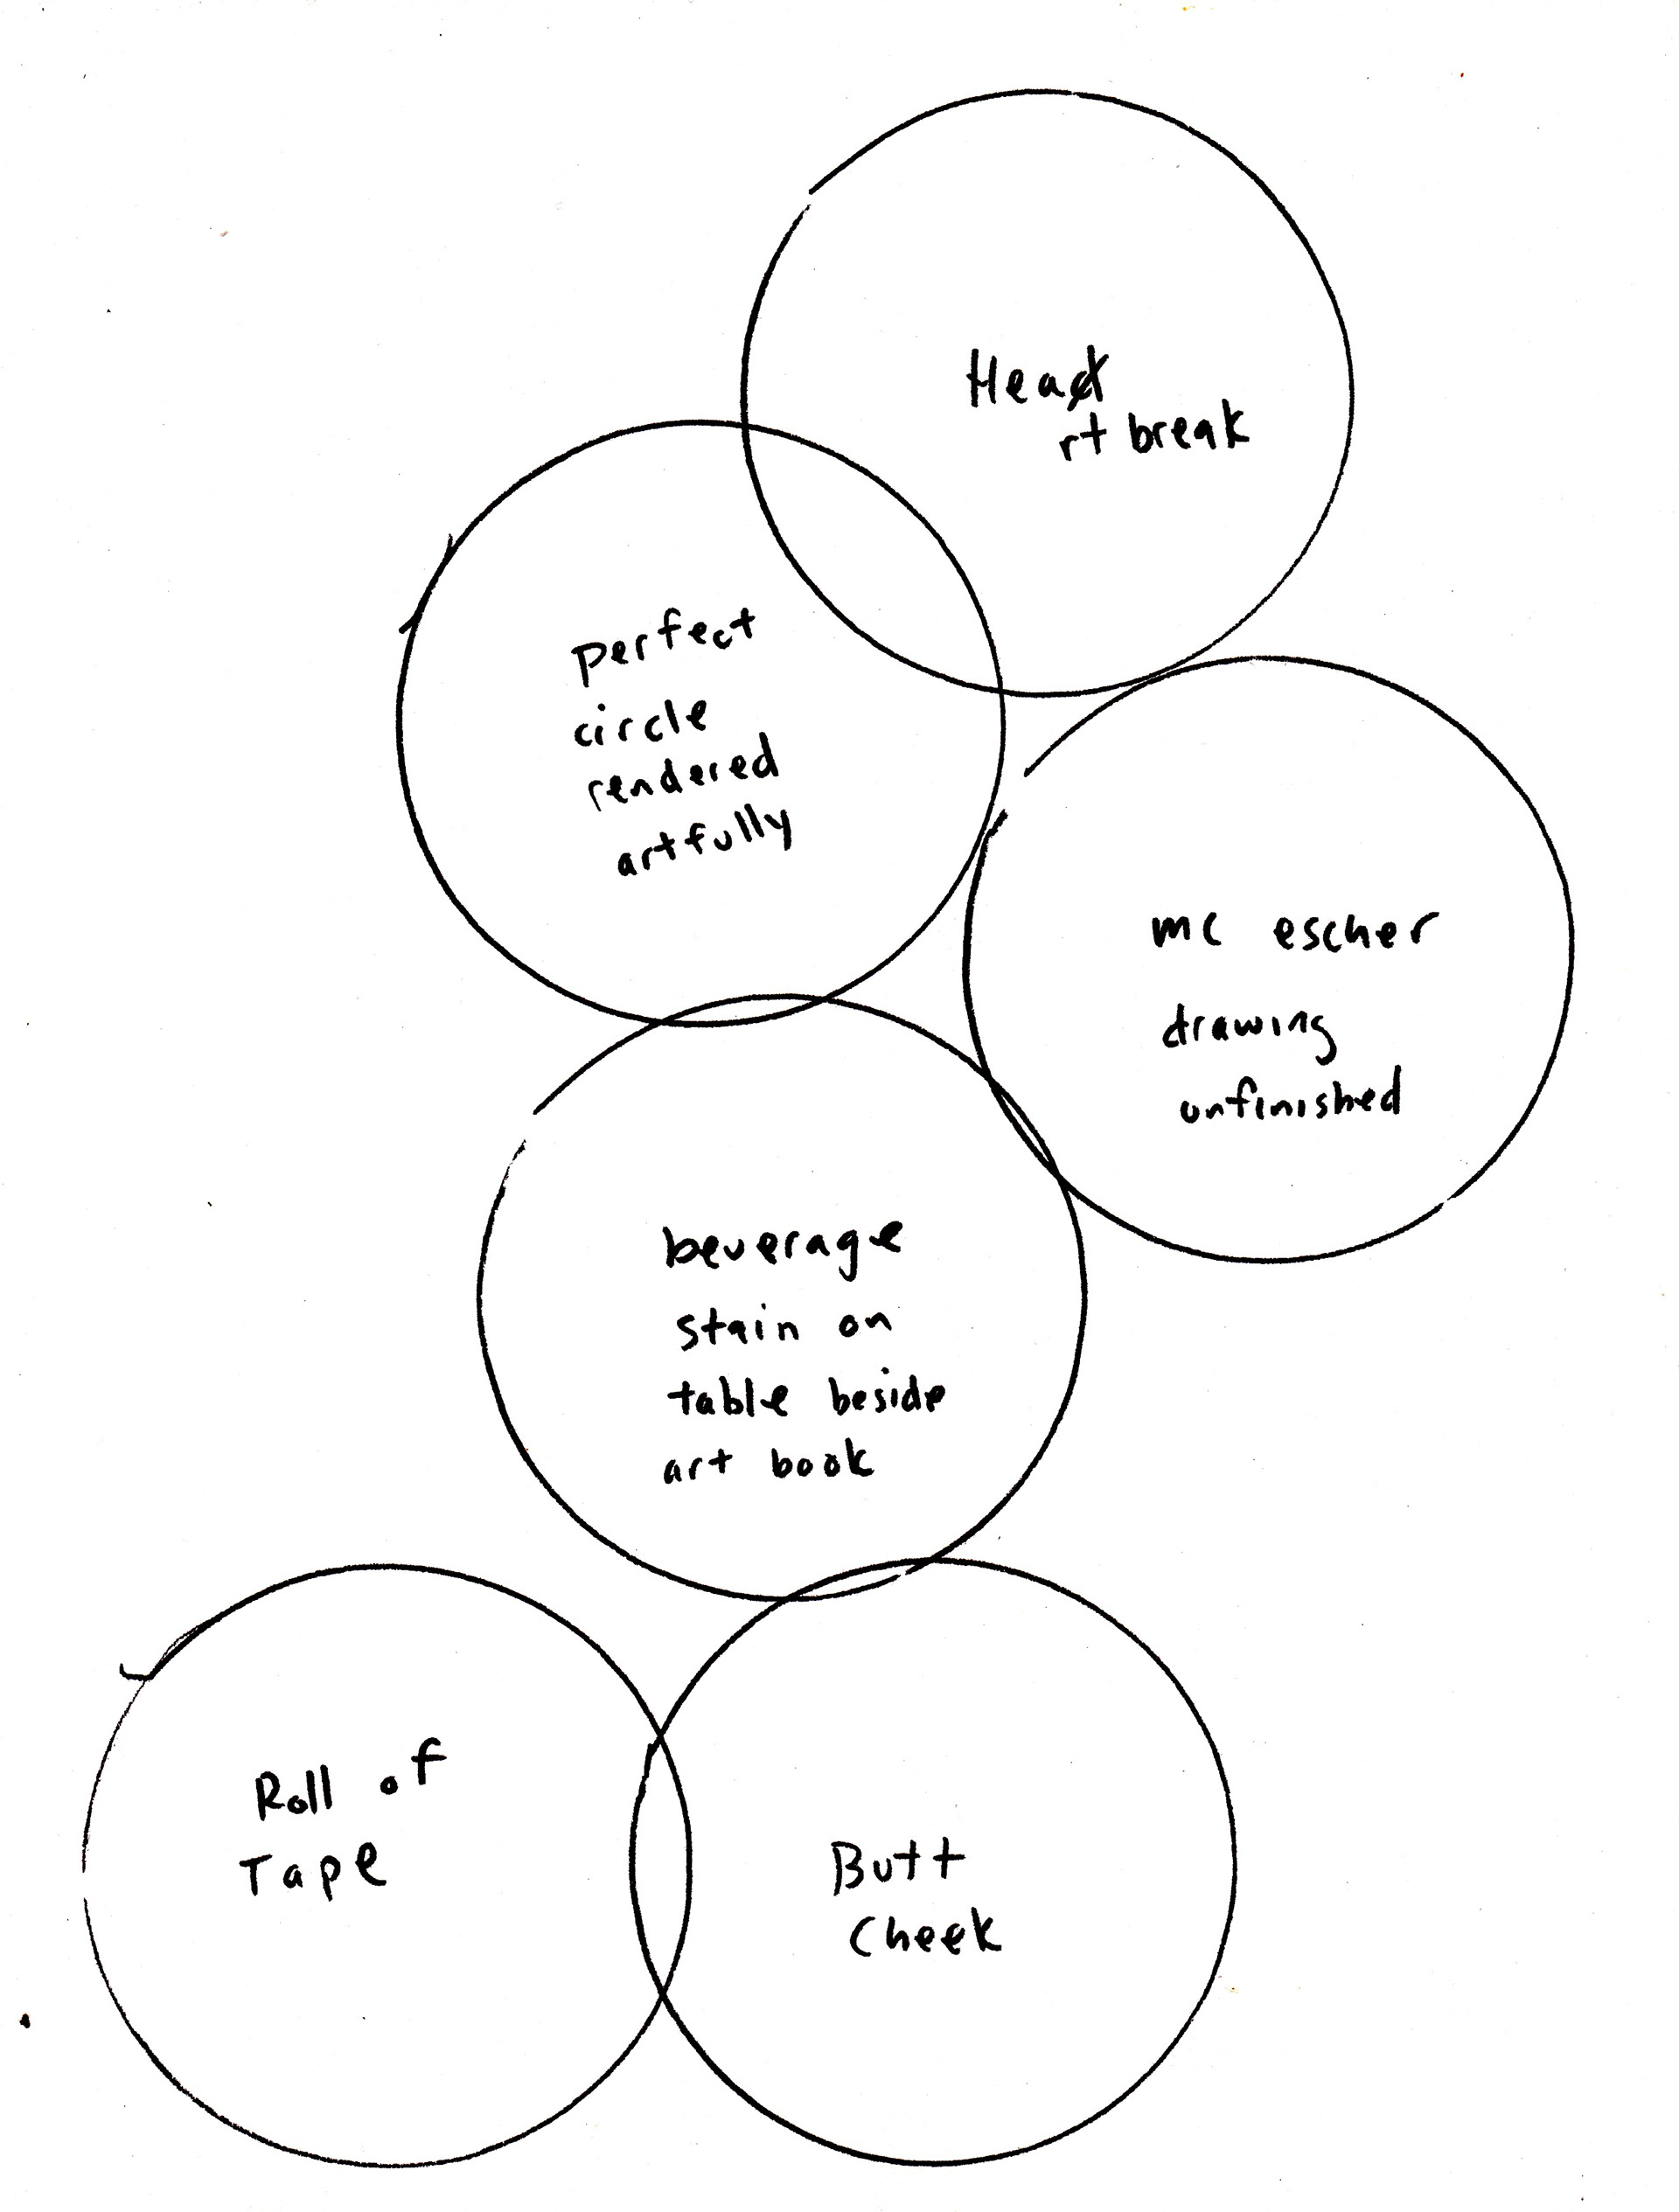 Head
rt break
perfect
circle
rendered
artfully
mc escher
drawing
unfinished
beverage
stain on
table beside
art book
Roll of
Tape
Butt
Cheek